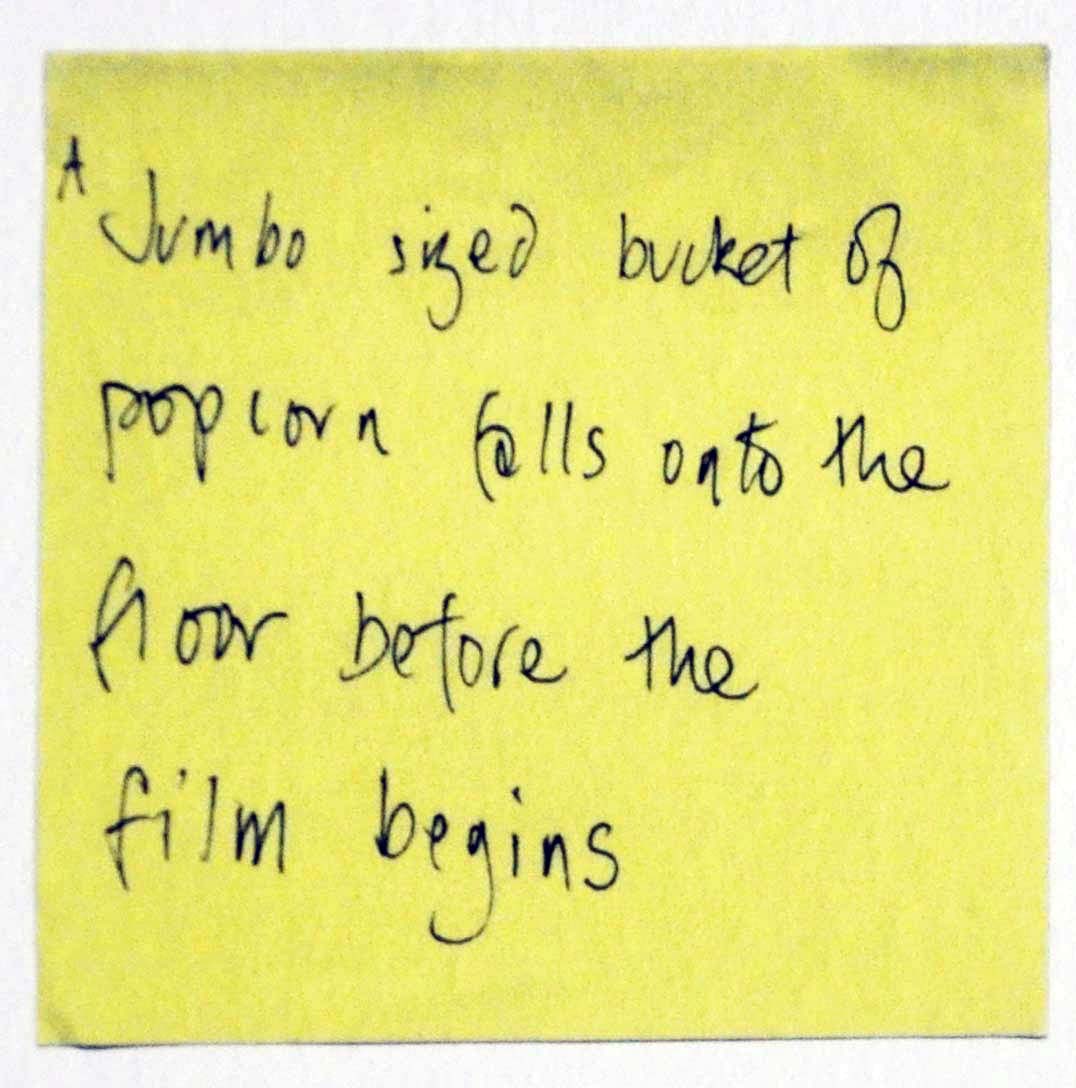 A Jumbo sized bucket of
popcorn falls onto the
floor before the
film begins